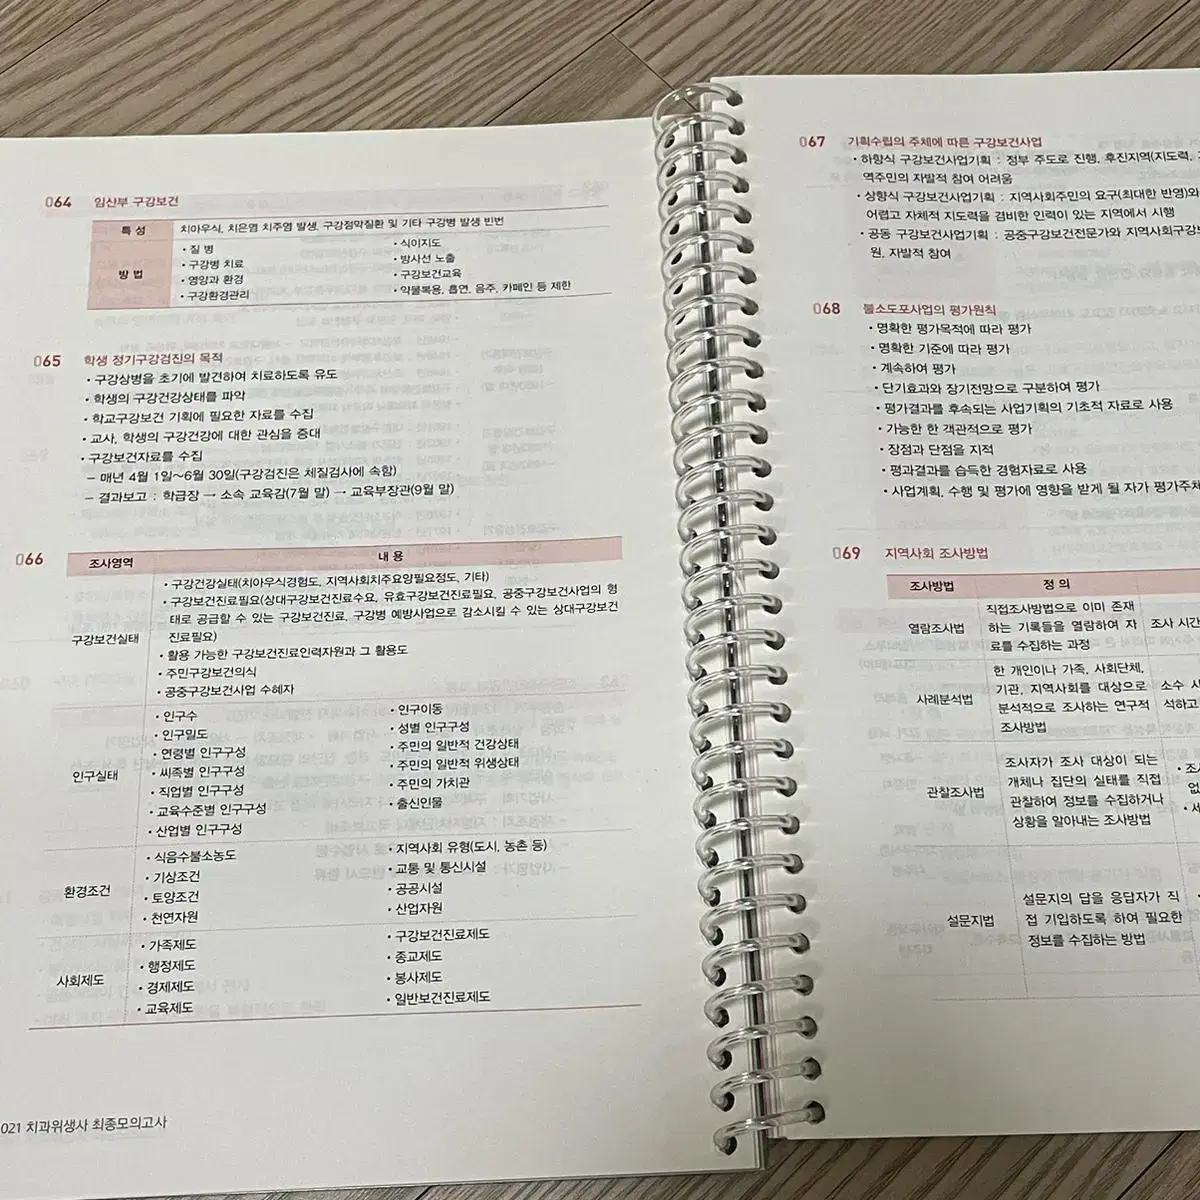 064 임산부 구강보건
특 성 치아우식, 치은염 치주염 발생, 구강점막질환 및 기타 구강병 발생 빈번
방 법
• 질 병
• 구강병 치료
• 영양과 환경
• 구강환경관리
• 식이지도
• 방사선 노출
• 구강보건교육
• 약물복용, 흡연, 음주, 카페인 등 제한
065 학생 정기구강검진의 목적
• 구강상병을 초기에 발견하여 치료하도록 유도
• 학생의 구강건강상태를 파악
• 학교구강보건 기획에 필요한 자료를 수집
• 교사, 학생의 구강건강에 대한 관심을 증대
• 구강보건자료를 수집
– 매년 4월 1일~6월 30일(구강검진은 체질검사에 속함)
– 결과보고 : 학급장 → 소속 교육감(7월 말) → 교육부장관(9월 말)
066
조사영역 내 용
구강보건실태
• 구강건강실태(치아우식경험도, 지역사회치주요양필요정도, 기타)
• 구강보건진료필요(상대구강보건진료수요, 유효구강보건진료필요, 공중구강보건사업의 형
태로 공급할 수 있는 구강보건진료, 구강병 예방사업으로 감소시킬 수 있는 상대구강보건
진료필요)
• 활용 가능한 구강보건진료인력자원과 그 활용도
• 주민구강보건의식
• 공중구강보건사업 수혜자
인구실태
• 인구수
• 인구밀도
• 연령별 인구구성
• 씨족별 인구구성
• 직업별 인구구성
• 교육수준별 인구구성
• 산업별 인구구성
• 인구이동
• 성별 인구구성
• 주민의 일반적 건강상태
• 주민의 일반적 위생상태
• 주민의 가치관
• 출신인물
환경조건
• 식음수불소농도
• 기상조건
• 토양조건
• 천연자원
• 지역사회 유형(도시, 농촌 등)
• 교통 및 통신시설
• 공공시설
• 산업자원
사회제도
• 가족제도
• 행정제도
• 경제제도
• 교육제도
• 구강보건진료제도
• 종교제도
• 봉사제도
• 일반보건진료제도
021 치과위생사 최종모의고사
067 기획수립의 주체에 따른 구강보건사업
• 하향식 구강보건사업기획 : 정부 주도로 진행, 후진지역(지도력,
역주민의 자발적 참여 어려움
• 상향식 구강보건사업기획 : 지역사회주민의 요구(최대한 반영)와
어렵고 자체적 지도력을 겸비한 인력이 있는 지역에서 시행
• 공동 구강보건사업기획 : 공중구강보건전문가와 지역사회구강보
원, 자발적 참여
068 불소도포사업의 평가원칙
• 명확한 평가목적에 따라 평가
• 명확한 기준에 따라 평가
• 계속하여 평가
• 단기효과와 장기전망으로 구분하여 평가
• 평가결과를 후속되는 사업기획의 기초적 자료로 사용
• 가능한 한 객관적으로 평가
• 장점과 단점을 지적
• 평과결과를 습득한 경험자료로 사용
• 사업계획, 수행 및 평가에 영향을 받게 될 자가 평가주체
069 지역사회 조사방법
조사방법 정 의
열람조사법
직접조사방법으로 이미 존재
하는 기록들을 열람하여 자
료를 수집하는 과정
조사 시간
사례분석법
한 개인이나 가족, 사회단체,
기관, 지역사회를 대상으로
분석적으로 조사하는 연구적
조사방법
소수 사
석하고
관찰조사법
조사자가 조사 대상이 되는
개체나 집단의 실태를 직접
관찰하여 정보를 수집하거나
상황을 알아내는 조사방법
• 조사
없
• 세
설문지법
설문지의 답을 응답자가 직
접 기입하도록 하여 필요한
정보를 수집하는 방법